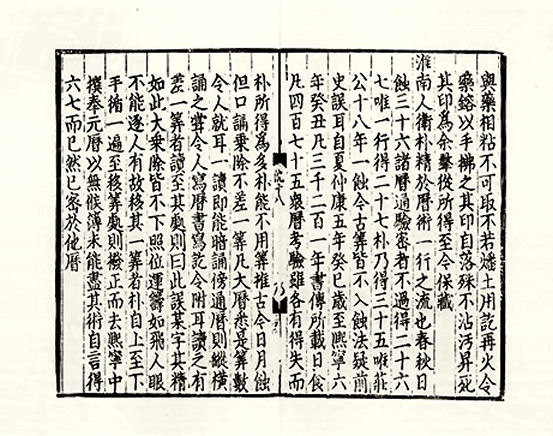 與藥相粘不可取不若燔土用訖再火令
藥鎔以手拂之其印自落殊不沾污昇死
其印為余羣從所得至今保藏
淮南人衛朴精於曆術一行之流也春秋日
蝕三十六諸曆通驗密者不過得二十六
七唯一行得二十七朴乃得三十五唯莊
公十八年一蝕今古筭皆不入蝕法疑前
史誤耳自夏仲康五年癸巳歲至熙寧六
年癸丑凡三千二百一年書傳所載日食
凡四百七十五衆曆考驗雖各有得失而
十八
朴所得為多朴能不用筭推古今日月蝕
但口誦乗除不差一筭凡大曆悉是筭數
令人就耳一讀即能暗誦傍通曆則縱橫
誦之嘗令人寫曆書寫訖令附耳讀之有
差一筭者讀至其處則曰此誤某字其精
如此大乗除皆不下照位運籌如飛人眼
不能逐人有故移其一筭者朴自上至下
手循一遍至移筭處則撥正而去熙寧中
撰奉元曆以無候簿未能盡其術自言得
六七而已然已密於他曆